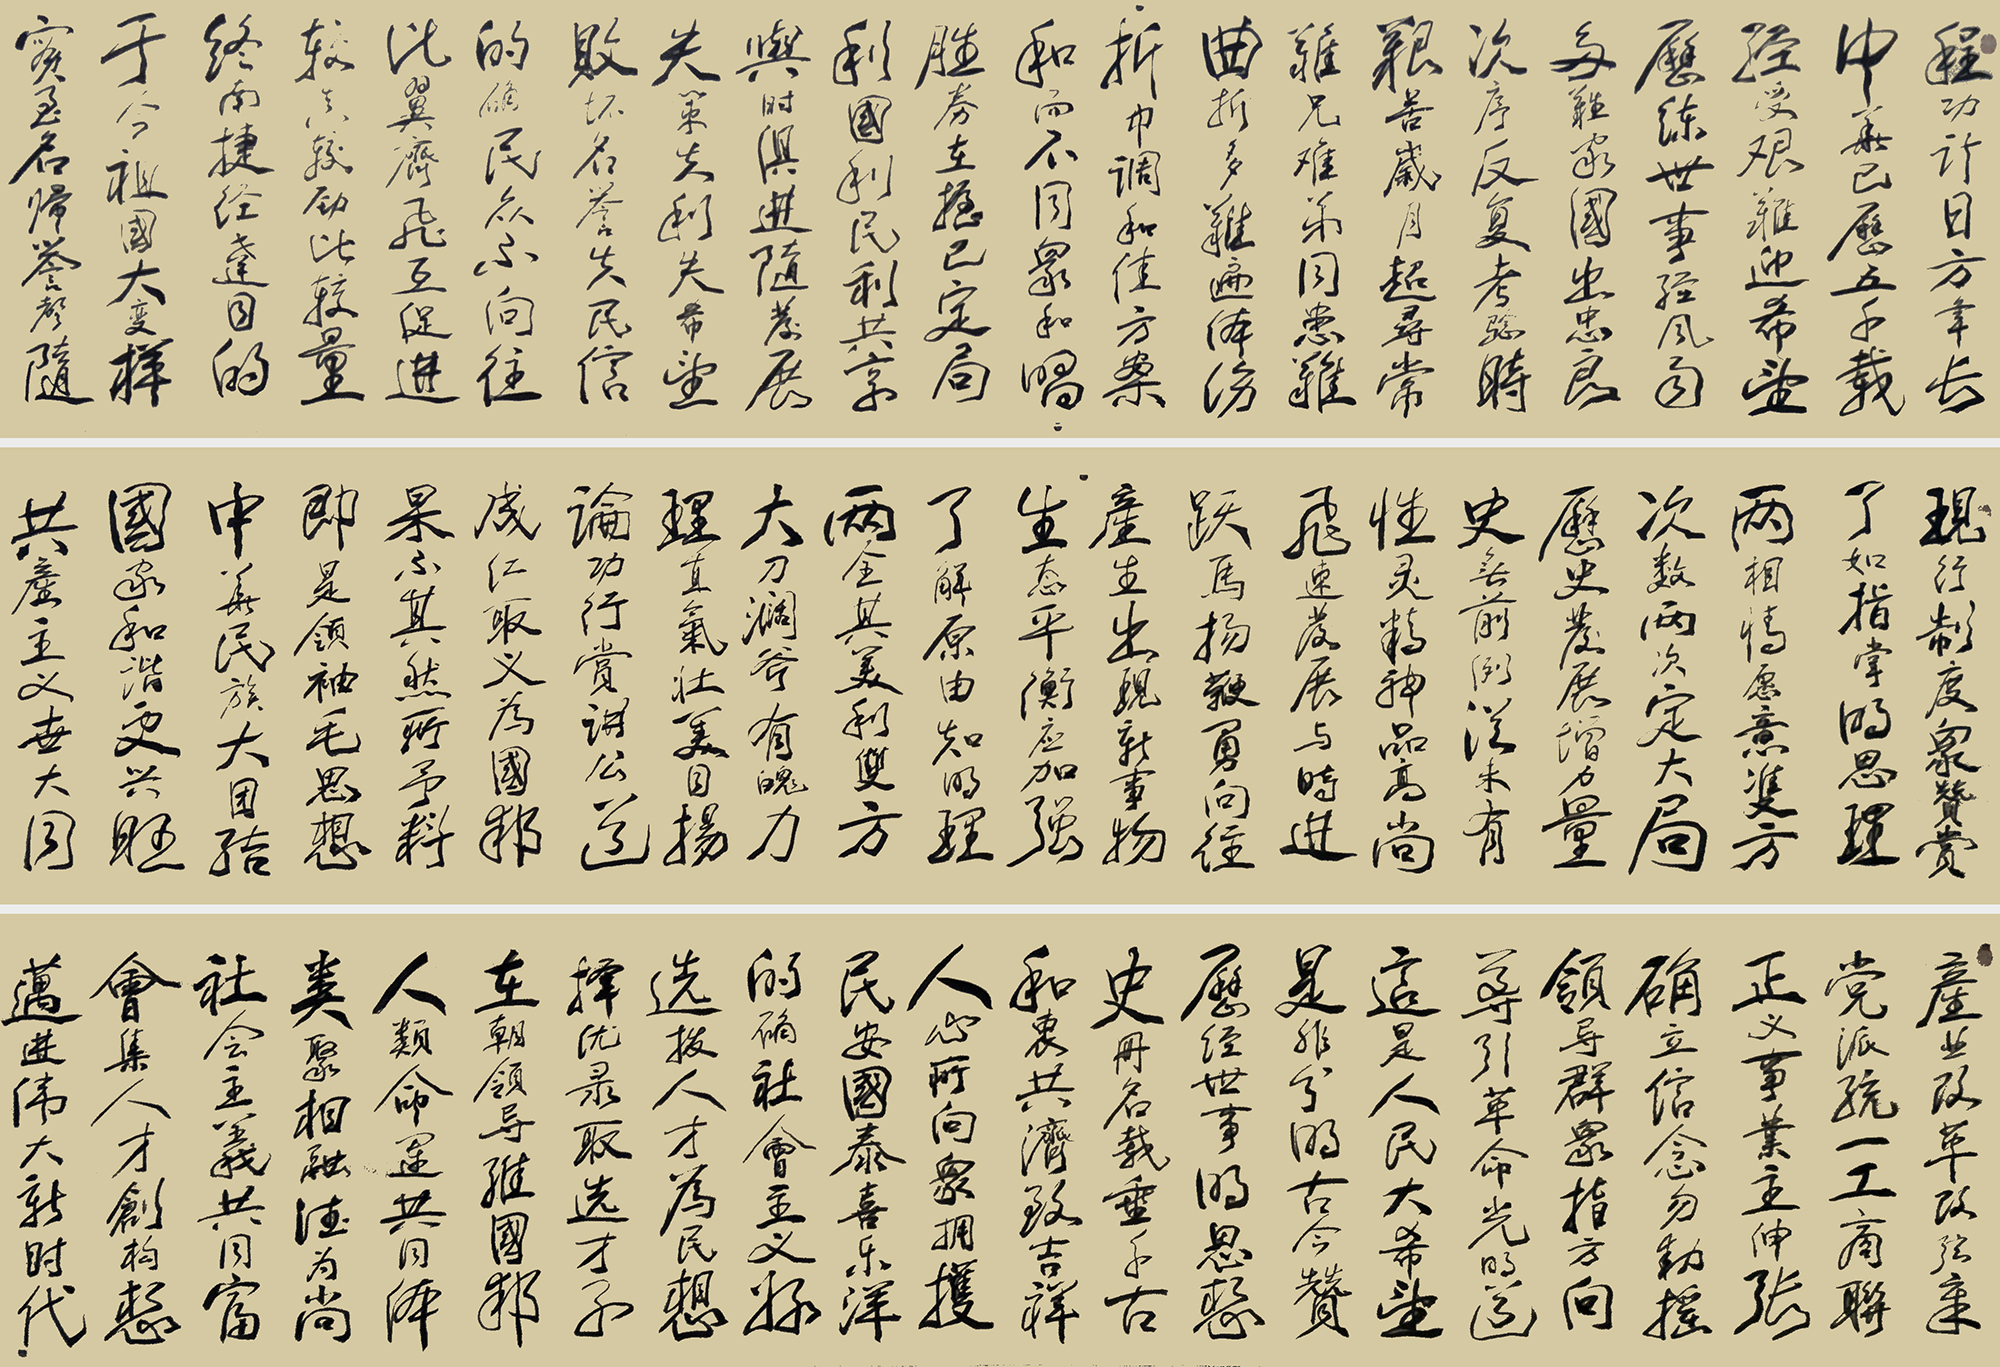 程功计日方年长
中華已歷五千载
经受艰難迎希望
歷练世事经风雨
多难家國出忠良
次序反复考验時
艰苦歲月超尋常
難兄难弟同患難
曲折多難遍体伤
折中调和佳方案
和而不同衆和唱
胜券在握已定局
利國利民利共享
與时俱进随發展
失策失利失希望
败坏名誉失民信
的确民众所向往
比翼齊飛互促进
较真较劲比较量
终南捷径達目的
于今祖國大变样
實至名歸誉声随
現行制度衆贊赏
了如指掌明思理
两相情愿意雙方
次数两次定大局
歷史發展增力量
史無前例從未有
性灵精神品高尚
飛速發展与時进
跃馬扬鞭勇向往
產生出現新事物
生态平衡应加强
了解原由知明理
两全其美利雙方
大刀阔斧有魄力
理直氣壮美目揚
論功行賞講公道
成仁取义為國邦
果不其然所予料
即是領袖毛思想
中華民族大团结
國家和谐更兴旺
共產主义世大同
產业改革改弦章
党派统一工商聯
正义事業主伸张
确立信念勿動摇
領导群衆指方向
导引革命光明道
這是人民大希望
是非分明古今贊
歷经世事明思想
史冊名载垂千古
和衷共濟致吉祥
人心所向衆拥護
民安國泰喜乐洋
的确社會主义好
选拔人才為民想
择优录取选才子
在朝領导維國邦
人類命运共同体
类聚相融德为尚
社会主義共同富
會集人才創构想
邁进伟大新时代